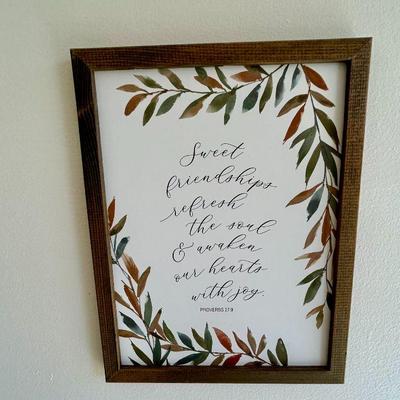 Sweet
friendships
refresh
the soul
& awaken
our hearts
with joy.
PROVERBS 27:9